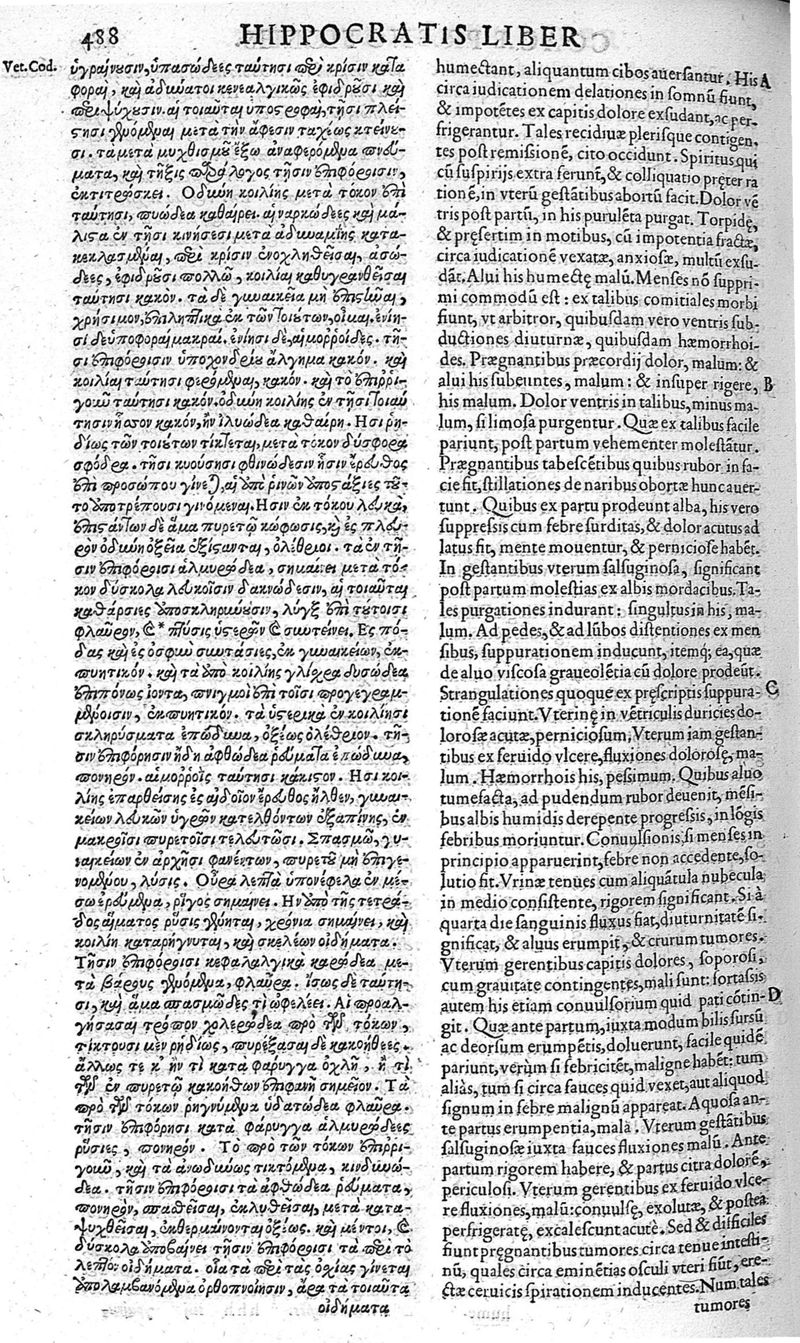 488 HIPPOCRATIS LIBER
Vet. Cod.
ὑγραίνουσιν, ὑπασώδεες ταύτῃσι περὶ κρίσιν κατα
φοραὶ, καὶ ἀδύνατοι κενεαλγικῶς ἐφιδροῦσι καὶ
περιψύχουσιν. αἱ τοιαῦται ὑποστροφαὶ, τῇσι πλεί-
στῃσι γενόμεναι μετὰ τὴν ἄφεσιν ταχέως κτείνου-
σι. τὰ μετὰ μυχθισμοῦ ἔξω ἀναφερόμενα πνεύ-
ματα, καὶ τῆξις παράλογος τῇσιν ἐπιφόροισιν,
ἐκτιτρώσκει. Ὀδύνη κοιλίης μετὰ τόκον ἐπὶ
ταύτῃσι, πυώδεα καθαίρει. αἱ ναρκώδεες καὶ μά-
λιστα ἐν τῇσι κινήσεσι μετὰ ἀδυναμίης κατα-
κεκλασμέναι, περὶ κρίσιν ἐνοχληθεῖσαι, ἀσώ-
δεες, ἐφιδροῦσι πολλῷ, κοιλίαι καθυγρανθεῖσαι
ταύτῃσι κακόν. τὰ δὲ γυναικεῖα μὴ ἐπιστῆναι,
χρήσιμον, ἐπιληπτικὰ ἐκ τῶν τοιουτων, οἶμαι. ἐνίῃ-
σι δὲ ὑποφοραὶ μακραὶ. ἐνίῃσι δὲ, αἱμορροΐδες. τῇ-
σι ἐπιφόροισιν ὑποχονδρίου ἄλγημα κακόν. καὶ
κοιλίαι ταύτῃσι φερόμεναι, κακόν. καὶ τὸ ἐπιρρι-
γοῦν ταύτῃσι κακόν. ὀδύνη κοιλίης ἐν τῇσι τοιαύ
τῃσιν ἧσσον κακόν, ἢν ἰλυώδεα καθαίρῃ. Ἧσι ῥη-
δίως τῶν τοιούτων τίκτεται, μετὰ τόκον δύσφορα
σφόδρα. τῇσι κυούσῃσι φθινώδεσιν ᾗσιν ἔρευθος
ἐπὶ προσώπου γίνεται, αἱ ἀπὸ ῥινῶν ὑποστάξιες τοῦ-
το ἀποτρέπουσι γινόμεναι. Ἧσιν ἐκ τόκου λευκὰ,
ἐπιστάντων δὲ ἅμα πυρετῷ κώφωσις, καὶ ἐς πλευ-
ρὸν ὀδύνη ὀξεῖα ἐξίστανται, ὀλέθριοι. τὰ ἐν τῇ-
σιν ἐπιφόροισι ἁλμυρώδεα, σημαίνει μετὰ τό-
κον δύσκολα λευκοῖσιν δακνώδεσιν, αἱ τοιαῦται
καθάρσιες ἀποσκληρύνουσιν, λὺγξ ἐπὶ τούτοισι
φλαῦρον, καὶ* πτύσις ὑστερῶν καὶ συντείνει. Ἐς πό-
δας καὶ ἐς ὀσφὺν συντάσιες, ἐκ γυναικείων, ἐκ-
πυητικόν. καὶ τὰ ἀπὸ κοιλίης γλίσχρα δυσώδεα
ἐπιπόνως ἰόντα, πνιγμοὶ ἐπὶ τοῖσι προγεγραμ-
μένοισιν, ἐκπυητικόν. τὰ ὑστερικὰ ἐν κοιλίησι
σκληρύσματα ἐπώδυνα, ὀξέως ὀλέθριον. τῇ-
σιν ἐπιφόρησιν ἤδη ἀφθώδεα ῥεύματα ἐπώδυνα,
πονηρόν. αἱμορροῒς ταύτῃσι κάκιστον. Ἧσι κοι-
λίης ἐπαρθείσης ἐς αἰδοῖον ἔρευθος ἦλθεν, γυναι-
κείων λευκῶν ὑγρῶν κατελθόντων ἐξαπίνης, ἐν
μακροῖσι πυρετοῖσι τελευτῶσι. Σπασμῶν, γυ-
ναικείων ἐν ἀρχῇσι φανέντων, πυρετοῦ μὴ ἐπιγε-
νομένου, λύσις. Οὖρα λεπτὰ ὑπονέφελα ἐν μέ-
σῳ ἐρευόμενα, ῥῖγος σημαίνει. Ἢν ἀπὸ τῆς τετρά-
δος αἵματος ῥύσις γένηται, χρόνια σημαίνει, καὶ
κοιλίη καταρήγνυται, καὶ σκελέων οἰδήματα.
Τῇσιν ἐπιφόροισι κεφαλαλγικὰ καρώδεα με-
τὰ βάρους γενόμενα, φλαῦρα. ἴσως δὲ ταύτῃ-
σι, καὶ ἅμα σπασμῶδες τὶ ὠφελέει. Αἱ προαλ-
γήσασαι τρόπον χολερώδεα πρὸ τῶν τόκων,
τίκτουσι μὲν ρηιδίως, πυρέξασαι δὲ κακοήθεες.
ἄλλως τε κ' ἤν τι κατὰ φάρυγγα ὀχλῇ, ἤ τι
τῶν ἐν πυρετῷ κακοήθων ἐπιφανῇ σημεῖον. Τὰ
πρὸ τῶν τόκων ῥηγνύμενα ὑδατώδεα φλαῦρα.
τῇσιν ἐπιφόρησι κατὰ φάρυγγα ἁλμυρώδεες
ρύσιες, πονηρόν. Τὸ πρὸ τῶν τόκων ἐπιρρι-
γοῦν, καὶ τὰ ἀνοδύνως τικτόμενα, κινδυνώ-
δεα. τῇσιν ἐπιφόροισι τὰ ἀφθώδεα ῥεύματα,
πονηρὸν, σπασθεῖσαι, ἐκλυθεῖσαι, μετὰ κατα-
ψυχθεῖσαι, ἐκθερμαίνονται ὀξέως. καὶ μέντοι, καὶ
δύσκολα ἀποβαίνει τῇσιν ἐπιφόροισι τὰ περὶ τὸ
λεπτὸν οἰδήματα. οἷα τὰ περὶ τὰς ὀχὰς γίνεται
ἀπολαμβανόμενα ὀρθοπνοίησιν, ἄρα τὰ τοιαῦτα
οἰδήματα
humectant, aliquantum cibos auersantur. His A
circa iudicationem delationes in somnũ fiunt,
& impotẽtes ex capitis dolore exsudant, ac per-
frigerantur. Tales recidiuæ plerisque contigen-
tes post remissionẽ, cito occidunt. Spiritus qui
cũ suspirijs extra ferunt, & colliquatio pręter ra
tionẽ, in vterũ gestãtibus abortũ facit. Dolor vẽ
tris post partũ, in his purulẽta purgat. Torpidę,
& pręsertim in motibus, cũ impotentia fractæ,
circa iudicationẽ vexatæ, anxiosæ, multũ exsu-
dãt. Alui his humectę malũ. Menses nõ suppri-
mi commodũ est: ex talibus comitiales morbi
fiunt, vt arbitror, quibusdam vero ventris sub-
ductiones diuturnæ, quibusdam hæmorrhoi-
des. Prægnantibus præcordij dolor, malum: &
alui his subeuntes, malum: & insuper rigere, B
his malum. Dolor ventris in talibus, minus ma-
lum, si limosa purgentur. Quæ ex talibus facile
pariunt, post partum vehementer molestãtur.
Prægnantibus tabescẽtibus quibus rubor in fa-
cie fit, stillationes de naribus obortæ hunc auer-
tunt. Quibus ex partu prodeunt alba, his vero
suppressis cum febre surditas, & dolor acutus ad
latus fit, mente mouentur, & perniciose habẽt.
In gestantibus vterum salsuginosa, significant
post partum molestias ex albis mordacibus. Ta-
les purgationes indurant: singultus in his, ma-
lum. Ad pedes, & ad lũbos distentiones ex men
sibus, suppurationem inducunt, itemq; ea, quæ
de aluo viscosa graueolẽtia cũ dolore prodeũt.
Strangulationes quoque ex pręscriptis suppura- C
tionẽ faciunt. Vterinę in vẽtriculis duricies do-
lorosæ acutæ, perniciosum. Vterum iam gestan-
tibus ex feruido vlcere, fluxiones dolorosę, ma-
lum. Hæmorrhois his, pessimum. Quibus aluo
tumefacta, ad pudendum rubor deuenit, mẽsi-
bus albis humidis derepente progressis, in lõgis
febribus moriuntur. Conuulsionis, si menses in
principio apparuerint, febre non accedente, so-
lutio fit. Vrinæ tenues cum aliquãtula nubecula
in medio consistente, rigorem significant. Si à
quarta die sanguinis fluxus fiat, diuturnitatẽ si-
gnificat, & aluus erumpit, & crurum tumores.
Vterum gerentibus capitis dolores, soporosi,
cum grauitate contingentes, mali sunt: fortassis
autem his etiam conuulsorium quid pati cõtin- D
git. Quæ ante partum, iuxta modum bilis sursũ
ac deorsum erumpẽtis, doluerunt, facile quidẽ
pariunt, verùm si febricitẽt, maligne habẽt: tum
aliàs, tum si circa fauces quid vexet, aut aliquod
signum in febre malignũ appareat. Aquosa an-
te partus erumpentia, mala. Vterum gestãtibus
salsuginosæ iuxta fauces fluxiones malũ. Ante
partum rigorem habere, & partus citra dolorẽ,
periculosi. Vterum gerentibus ex feruido vlce-
re fluxiones, malũ: conuulsę, exolutæ, & postea
perfrigeratę, excalescunt acutè. Sed & difficiles
fiunt pręgnantibus tumores circa tenue intesti-
nũ, quales circa eminẽtias osculi vteri fiũt, ere-
ctæ ceruicis spirationem inducentes. Num tales
tumores